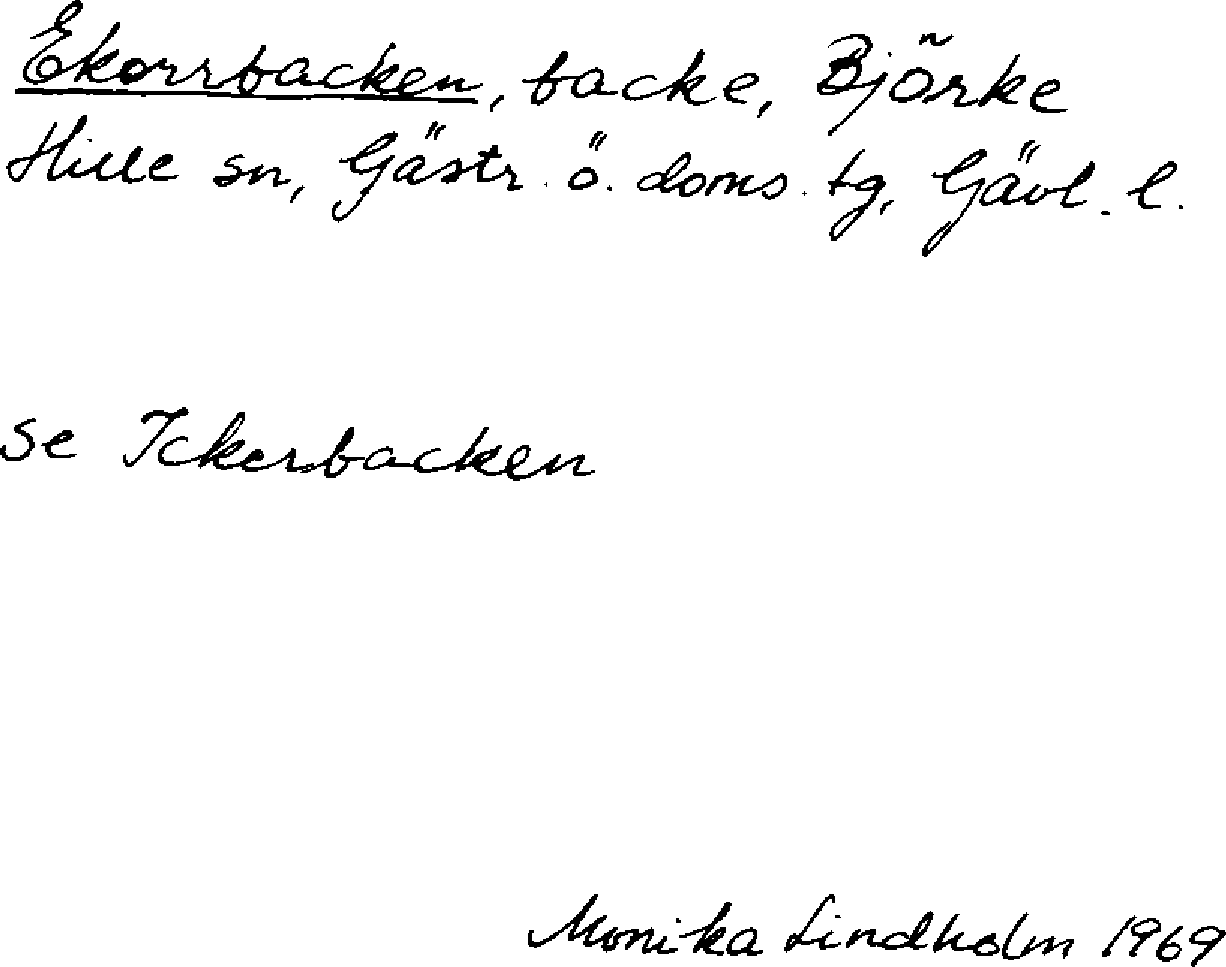 Ekorrbacken, backe, Björke
Hille sn, Gästr. ö. doms. tg, Gävl. l.
se Ickerbacken
Monika Lindholm 1969